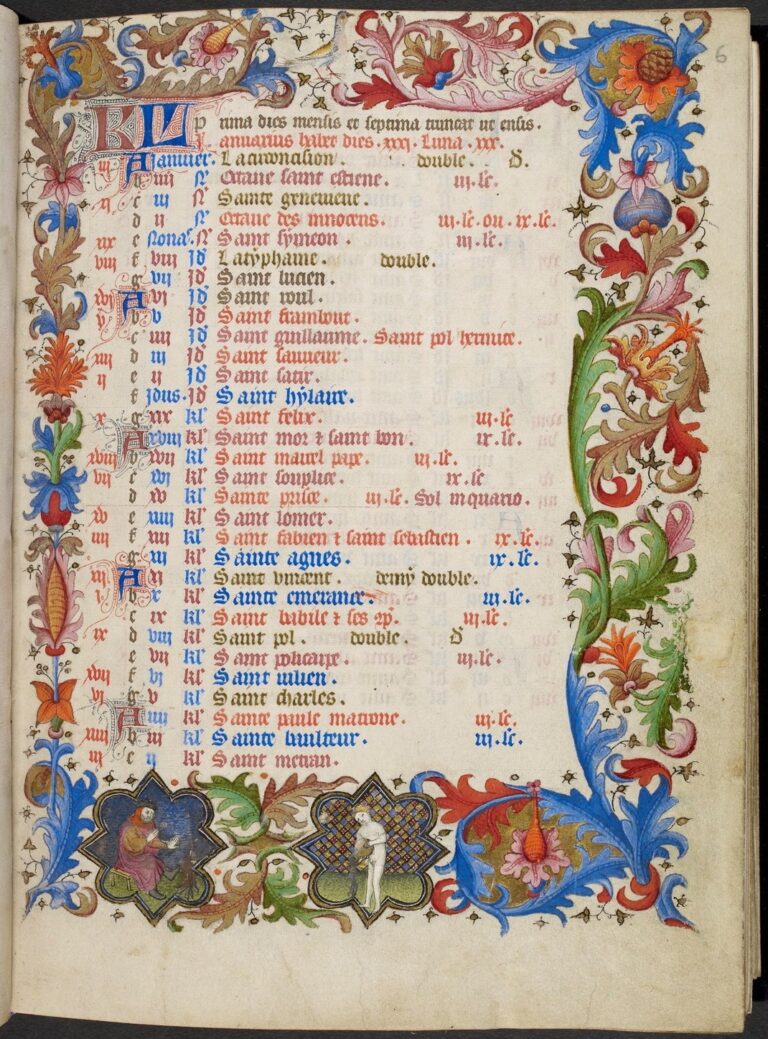 6
KL Prima dies mensis et septima truncat ut ensis.
Januarius habet dies .xxxi. Luna .xxx.
iii A Januier. La circoncision. double. d.
b iiii N Octaue saint estiene. iii. lc.
xi c iii N Sainte geneuieue.
d ii N Octaue des innocens. iii. lc. ou. ix. lc.
xix e Nonas. N Saint symeon. iii. lc.
viii f viii Id Latyphaine. double.
g vii Id Saint lucien.
xvi A vi Id Saint roul.
v b v Id Saint frambout.
c iiii Id Saint guillaume. Saint pol hermite.
xiii d iii Id Saint sauueur.
ii e ii Id Saint satir.
f Idus. Id Saint hylaire.
x g xix kl Saint felix. iii. lc.
A xviii kl Saint mor et saint bon. ix. lc.
xviii b xvii kl Saint marcel pape. iii. lc.
vii c xvi kl Saint souplice. ix. lc
d xv kl Sainte prisce. iii. lc. Sol in quario.
xv e xiiii kl Saint lomer.
iiii f xiii kl Saint fabien et saint sebastien. ix. lc.
g xii kl Sainte agnes. ix. lc.
xii A xi kl Saint vincent. demy double.
i b x kl Sainte emerance. iii. lc.
c ix kl Saint babile et ses 9p. iii. lc.
ix d viii kl Saint pol. double. d
e vii kl Saint policarpe. iii. lc.
xvii f vi kl Saint iulien.
vi g v kl Saint charles.
A iiii kl Sainte paule matrone. iii. lc.
xiiii b iii kl Sainte baulteur. iii. lc.
iii c ii kl Saint metran.